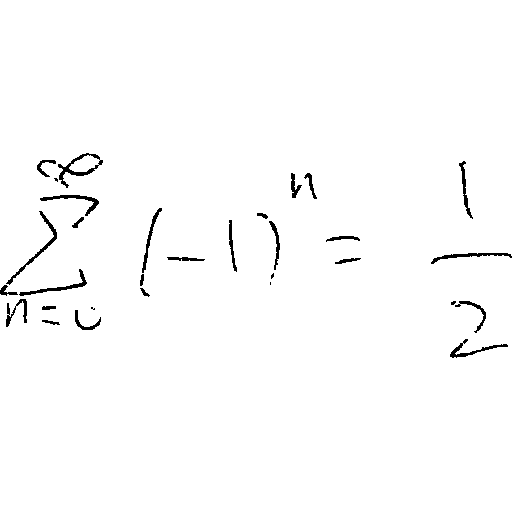 \sum_{n=0}^{\infty} (-1)^n = \frac{1}{2}